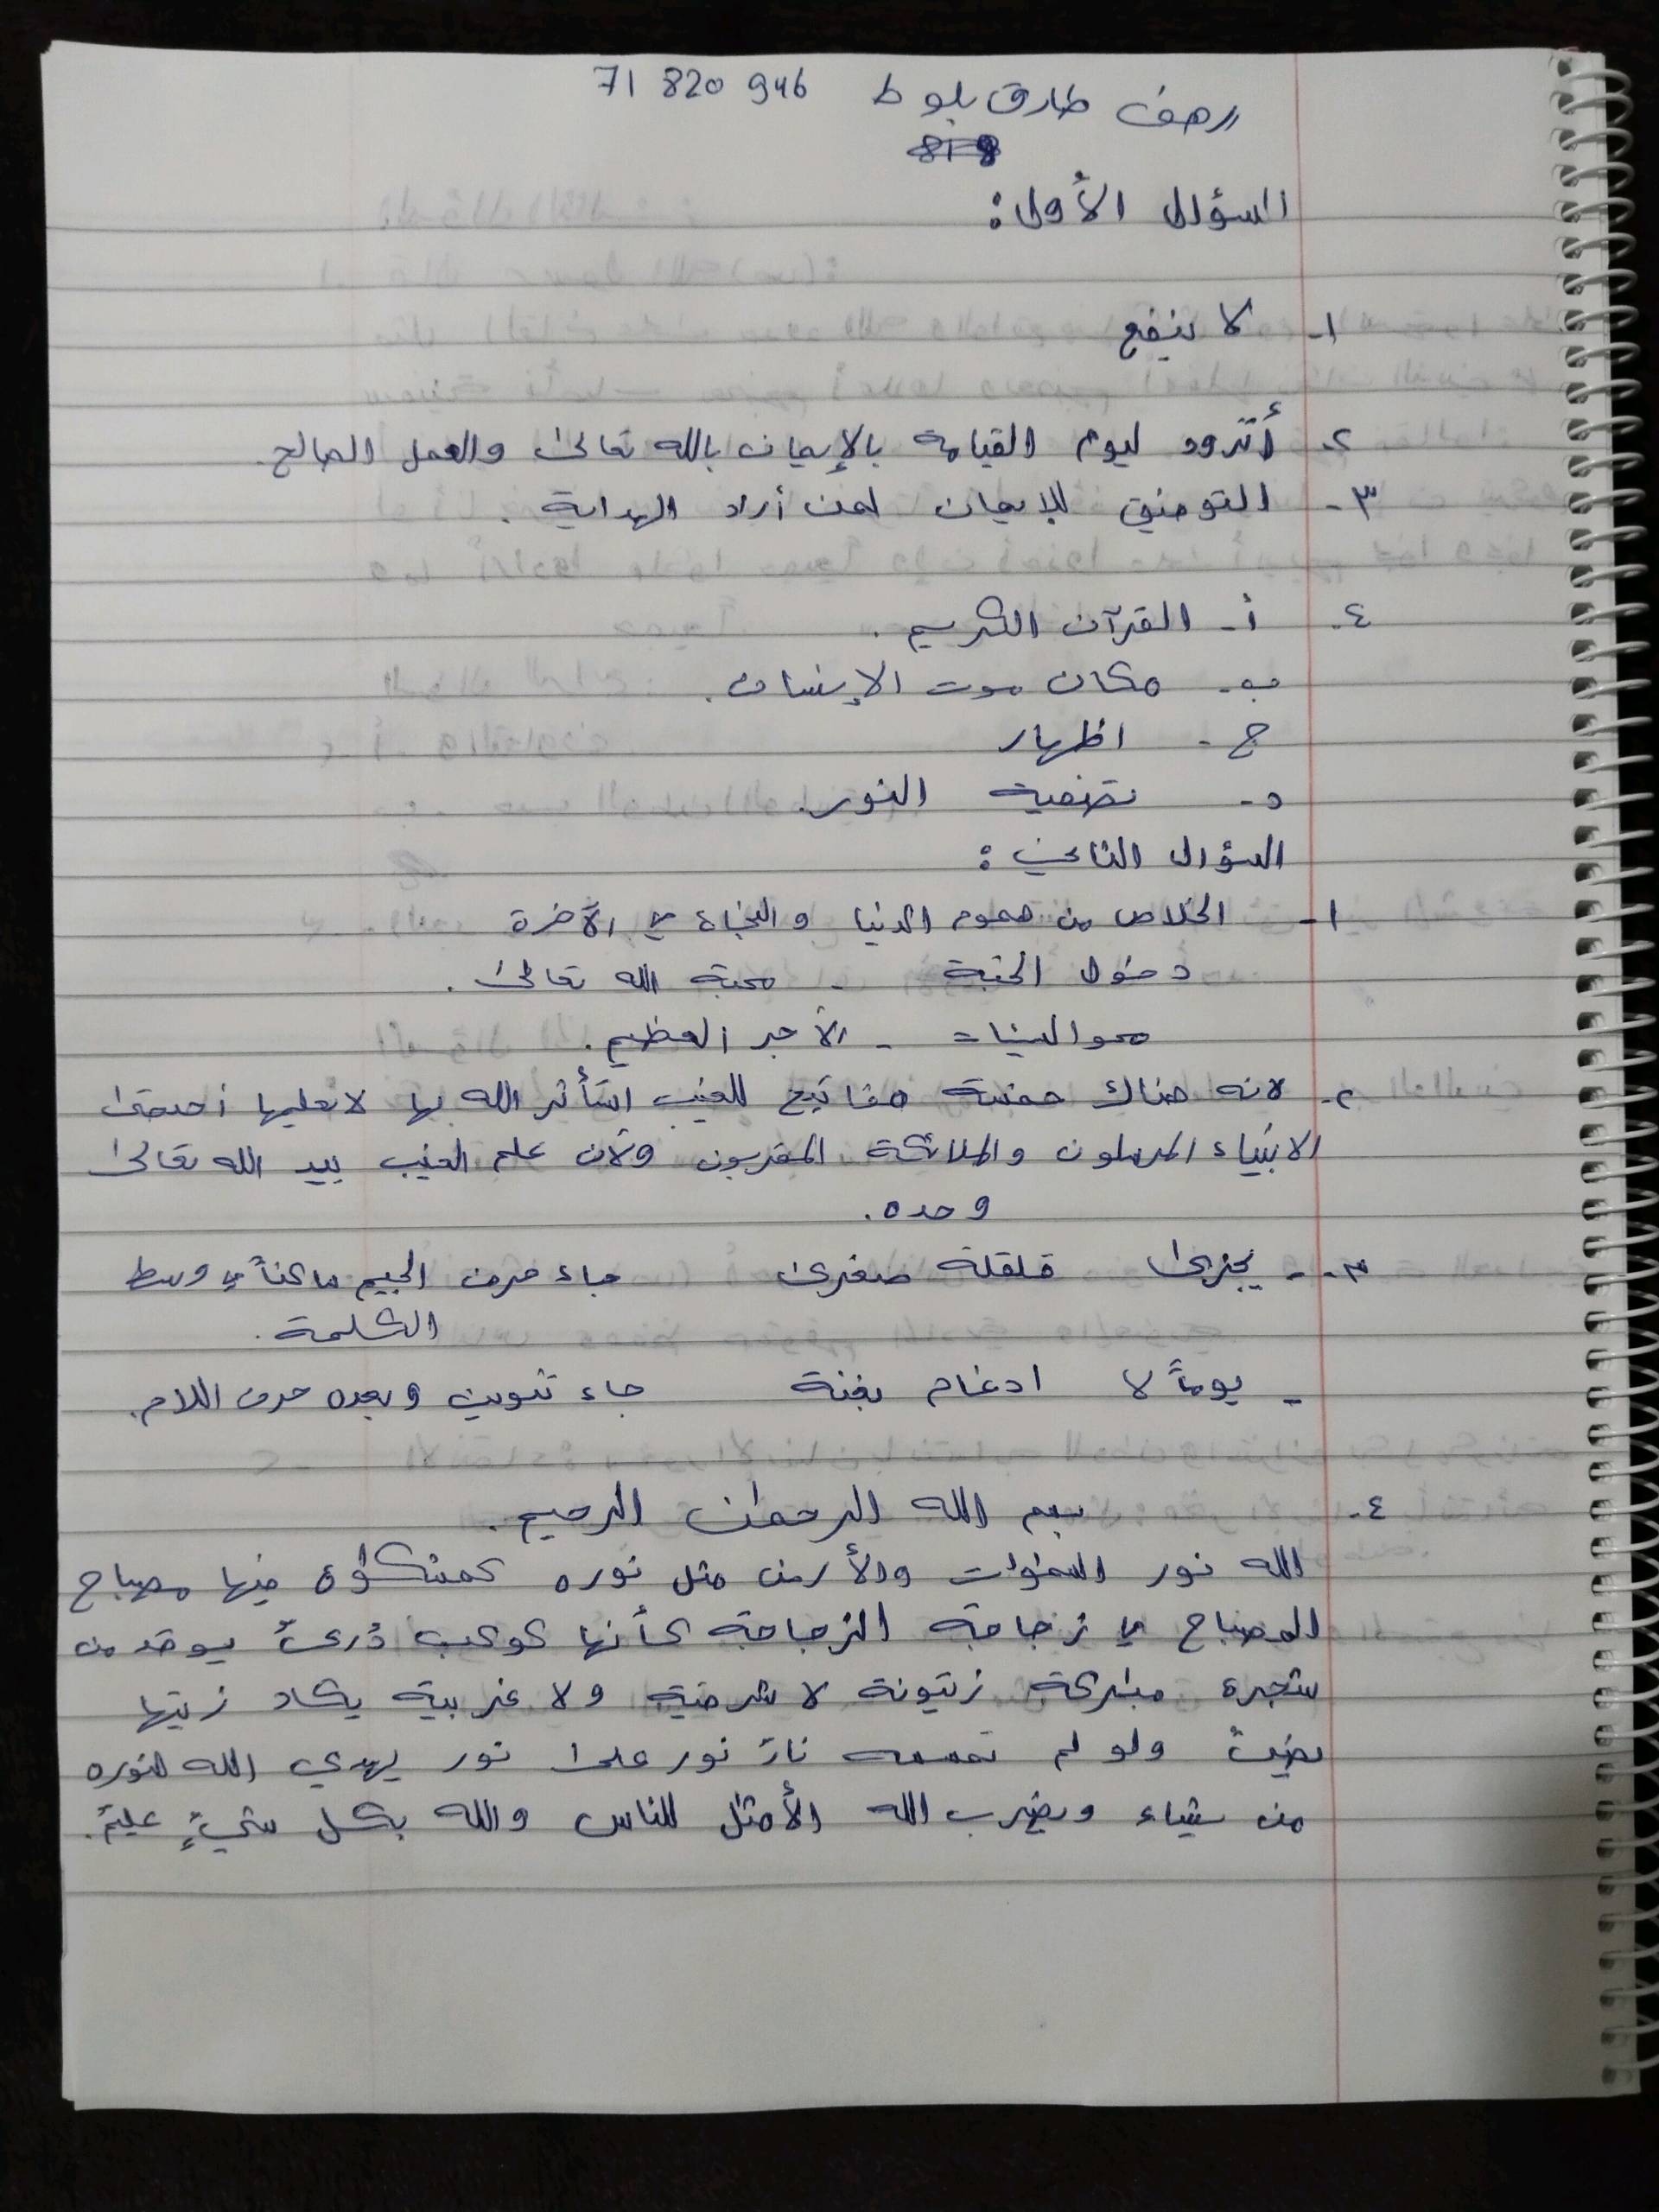 رهف طارق بلوط 71 820 946
السؤال الأول:
١- لا ينفع
٢- أتزود ليوم القيامة بالإيمان بالله تعالى والعمل الصالح.
٣- التوفيق للإيمان لمن أراد الهداية.
٤- أ- القرآن الكريم.
ب- مكان موت الإنسان.
ج- اظهار
د- تضعية النور.
السؤال الثاني:
١- الخلاص من هموم الدنيا والنجاة في الآخرة
دخول الجنة - محبة الله تعالى.
محو السيئات - الأجر العظيم.
٢- لانه هناك خمسة مفاتيح للغيب استأثر الله بها لا يعلمها أحد حتى
الانبياء المرسلون والملائكة المقربون ولأن علم الغيب بيد الله تعالى
وحده.
٣- - يجزى قلقلة صغرى جاء حرف الجيم ساكناً في وسط
الكلمة.
- يوماً لا ادغام بغنة جاء تنوين وبعده حرف اللام.
٤- بسم الله الرحمٰن الرحيم.
الله نور السمٰوات والأرض مثل نوره كمشكٰوة فيها مصباح
المصباح في زجاجة الزجاجة كأنها كوكب دُريٌ يوقد من
شجرة مبٰركة زيتونة لا شرقية ولا غربية يكاد زيتها
يضيئ ولو لم تمسسه نار نور على نور يهدي الله لنوره
من يشاء ويضرب الله الأمثٰل للناس والله بكل شيءٍ عليمٌ.